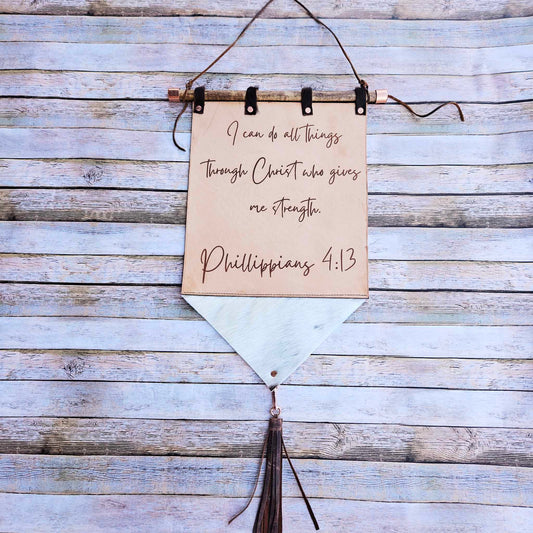 I can do all things
through Christ who gives
me strength.
Phillippians 4:13